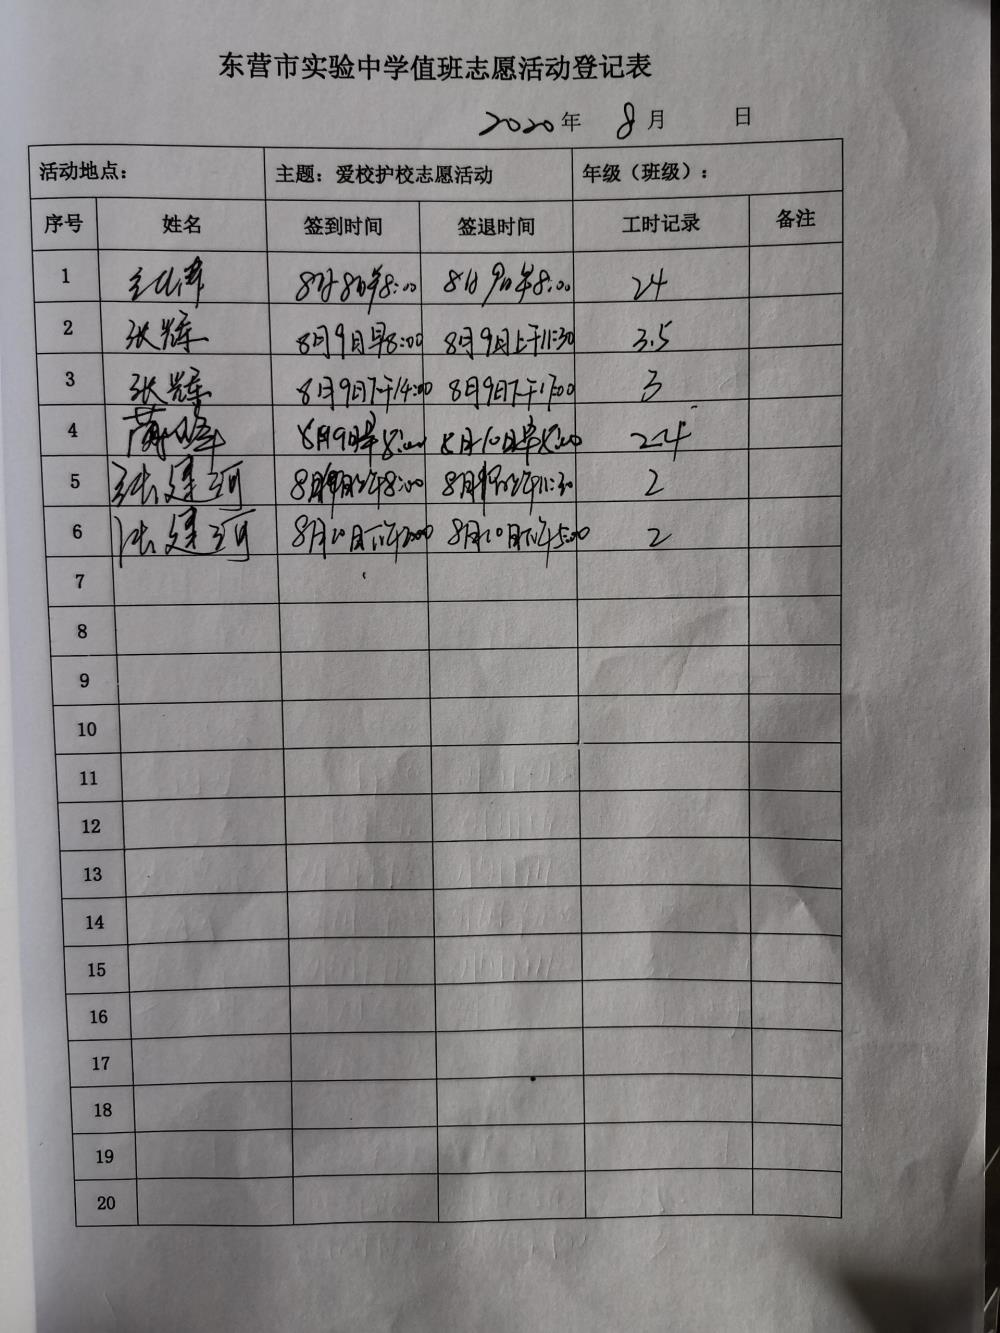 东营市实验中学值班志愿活动登记表
2020年 8月 日
活动地点： 主题：爱校护校志愿活动 年级（班级）：
序号 姓名 签到时间 签退时间 工时记录 备注
1 8月8日早8:00 8月9日早8:00 24
2 张辉 8月9日早8:00 8月9日上午11:30 3.5
3 张辉 8月9日下午14:00 8月9日下午17:00 3
4 8月9日早8:00 8月10日早8:00 24
5 张建河 8:00 11:30 2
6 张建河 8月10日下午 8月10日下午5:00 2
7
8
9
10
11
12
13
14
15
16
17
18
19
20